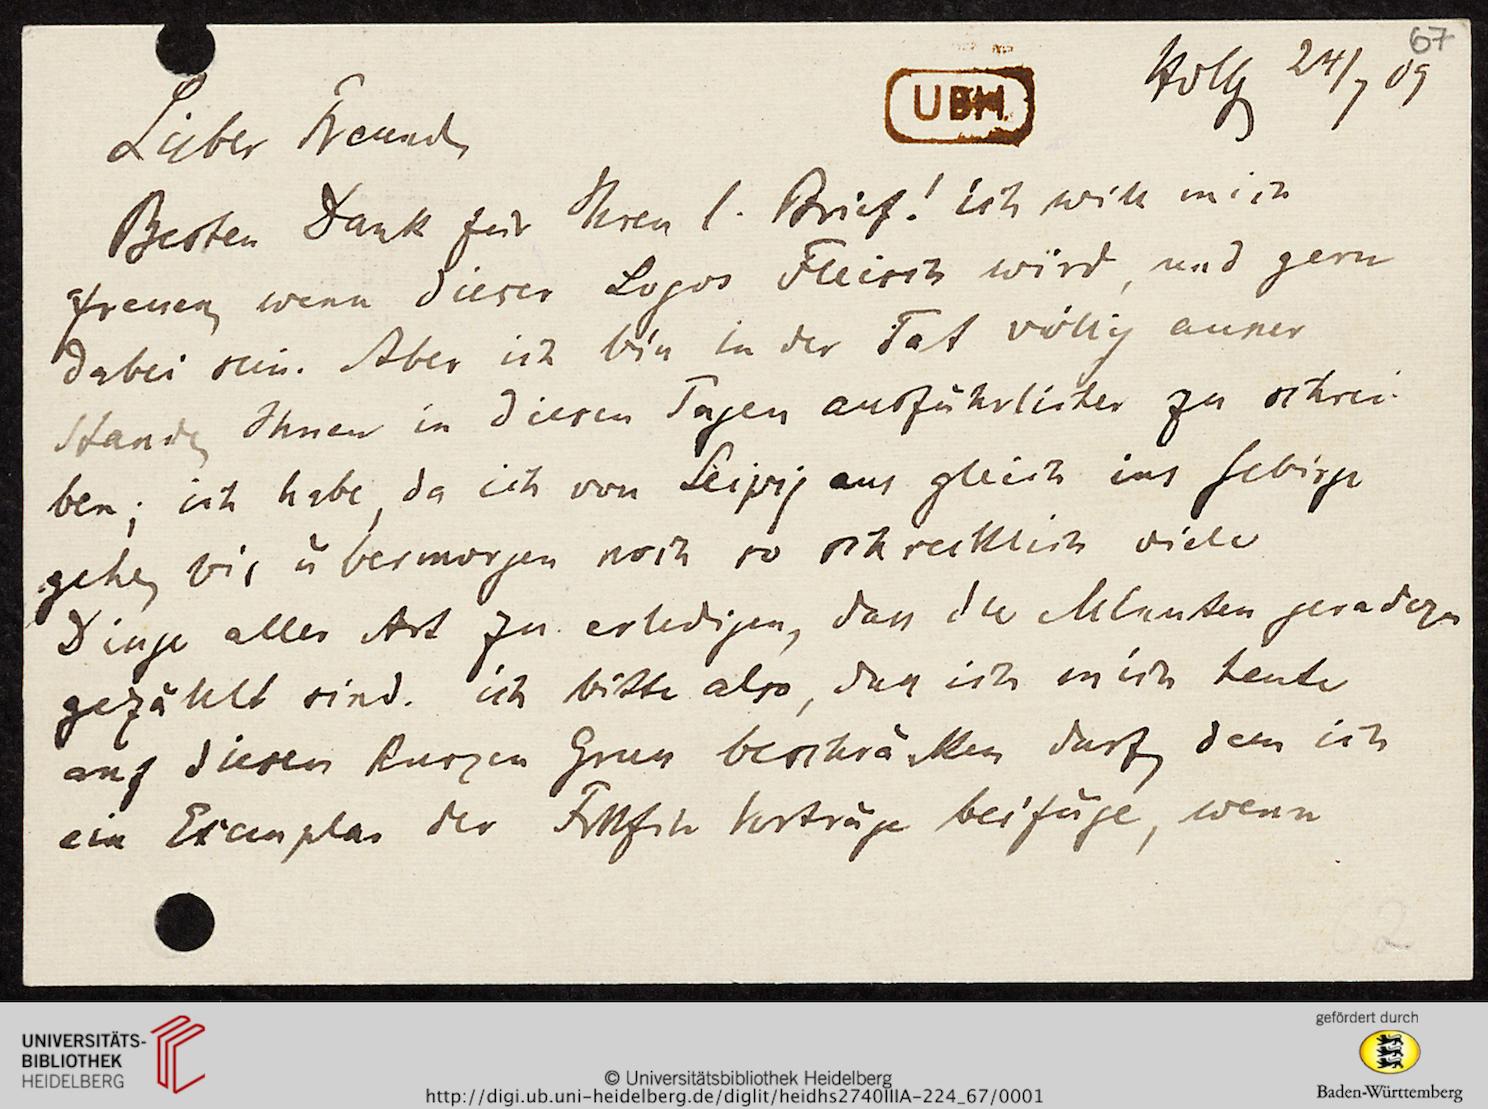 67
24/7 09
UBH
Lieber Freund,
Besten Dank für Ihren l. Brief! Ich will mich
freuen, wenn dieser Logos Fleisch wird, und gern
dabei sein. Aber ich bin in der Tat völlig ausser
Stande, Ihnen in diesen Tagen ausführlicher zu schrei-
ben; ich habe, da ich von Leipzig aus gleich ins Gebirge
gehe, bis übermorgen noch so schrecklich viele
Dinge aller Art zu erledigen, dass die Minuten geradezu
gezählt sind. Ich bitte also, dass ich mich heute
auf diesen kurzen Gruss beschränken darf, dem ich
ein Exemplar der Vorträge beifüge, wenn
62
UNIVERSITÄTS-
BIBLIOTHEK
HEIDELBERG
© Universitätsbibliothek Heidelberg
http://digi.ub.uni-heidelberg.de/diglit/heidhs2740IIIA-224_67/0001
gefördert durch
Baden-Württemberg